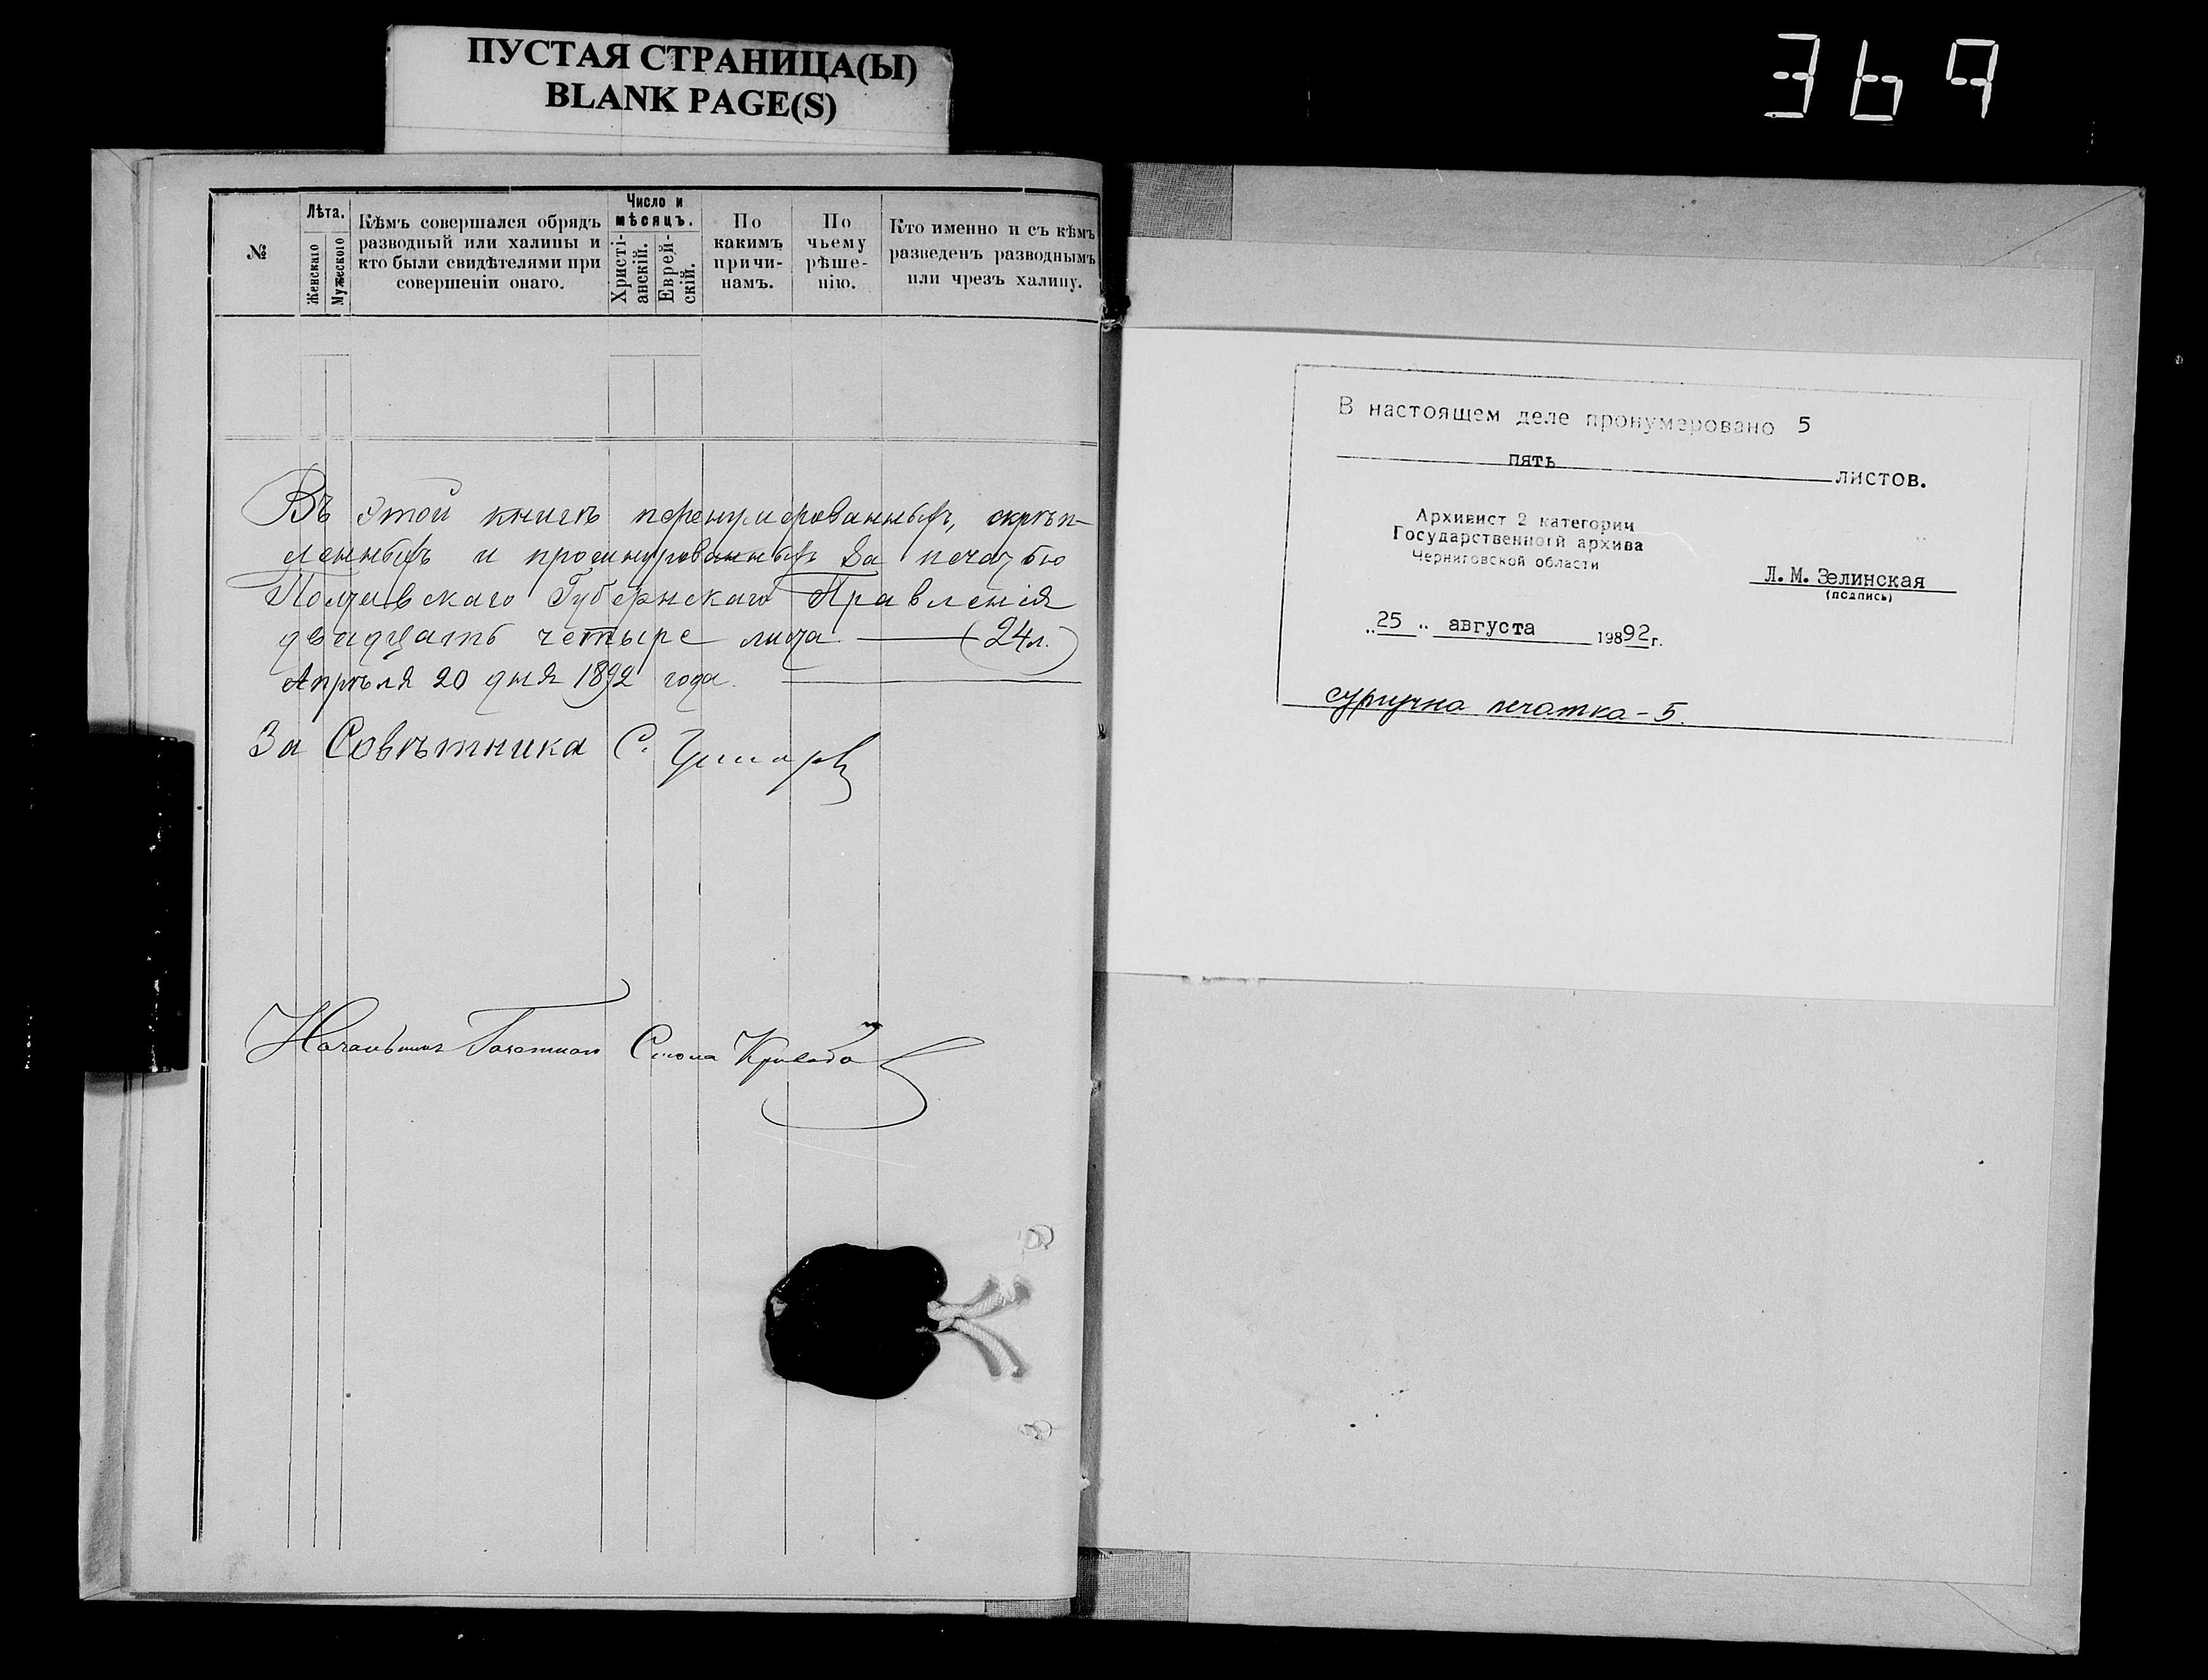 ПУСТАЯ СТРАНИЦА(Ы)
BLANK PAGE(S)
369
№
Лѣта.
Женскаго
Мужескаго
Кѣмъ совершался обрядъ
разводный или халицы и
кто были свидѣтелями при
совершеніи онаго.
Число и
мѣсяцъ.
Христі-
анскій.
Еврей-
скій.
По
какимъ
причи-
намъ.
По
чьему
рѣше-
нію.
Кто именно и съ кѣмъ
разведенъ разводнымъ
или чрезъ халицу.
Въ этой книгѣ перенумерованныхъ, скрѣп-
ленныхъ и прошнурованныхъ за печатью
Полтавскаго Губернскаго Правленія
двадцать четыре листа (24 л.)
Апрѣля 20 дня 1892 года.
За Совѣтника С.
Начальникъ Газетнаго Стола
В настоящем деле пронумеровано 5
пять листов.
Архивист 2 категории
Государственного архива
Черниговской области
Л.М.Зелинская
(подпись)
„25" августа 19892г.
сургучна печатка - 5.